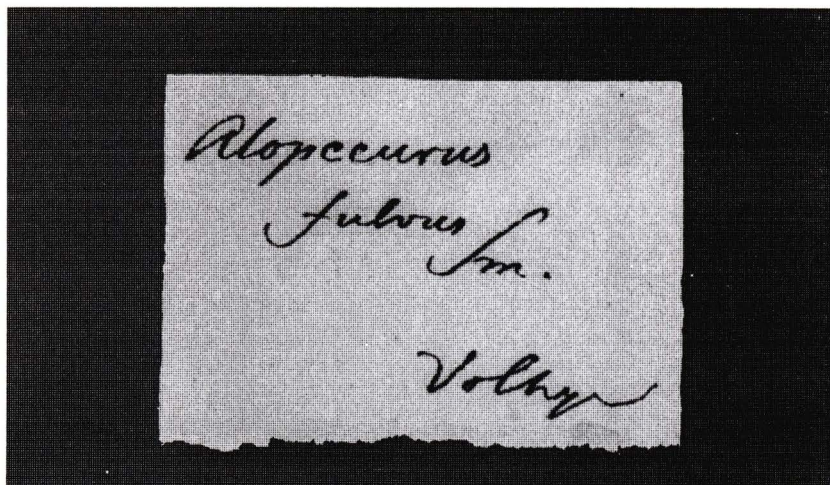 Alopecurus
fulvus
Sm.
Volhyn